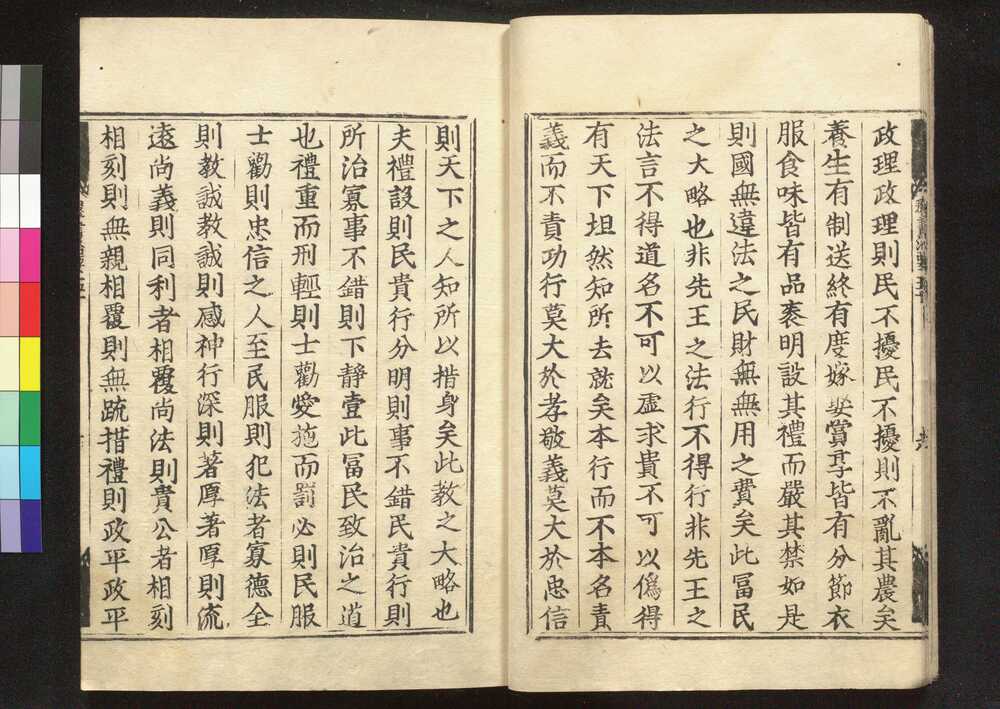 政理政理則民不擾民不擾則不亂其農矣
養生有制送終有度嫁娶賞予皆有分節衣
服食味皆有品袠明設其禮而嚴其禁如是
則國無違法之民財無無用之費矣此冨民
之大略也非先王之法行不得行非先王之
法言不得道名不可以虛求貴不可以僞得
有天下坦然知所去就矣本行而不本名責
義而不責功行莫大於孝敬義莫大於忠信
則天下之人知所以措身矣此教之大略也
夫禮設則民貴行分明則事不錯民貴行則
所治寡事不錯則下靜壹此冨民致治之道
也禮重而刑輕則士勸愛施而罰必則民服
士勸則忠信之人至民服則犯法者寡德全
則教誠教誠則感神行深則著厚著厚則流
遠尚義則同利者相覆尚法則貴公者相刻
相刻則無親相覆則無疏措禮則政平政平